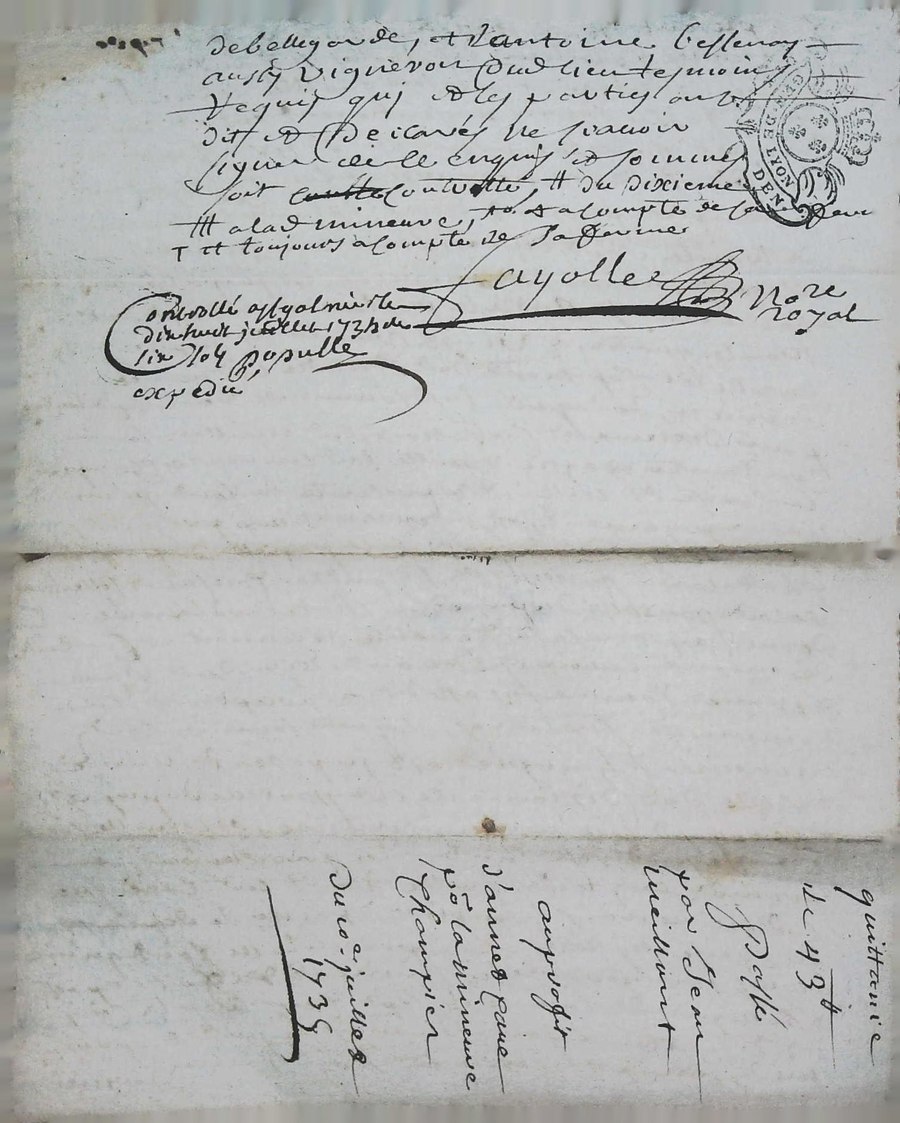 de bellegarde, et d'antoine
aussy vigneron dud lieu tesmoins
requis qui et les parties ont
dit et declarés ne scavoir
signer de ce enquis et sommés
soit controllé, # du dixieme
# a lad mineure, a compte de
T # toujours a compte de sa ferme
fayolle Nore
royal
Controllé a st galmier le
dix huit juillet 173
expedié
GEN. DE LYON
DEN.
quittance
de 43#
passé
par Jean
meillant
au profit
d'annet
po la mineure
Champier
Du 10e juillet
1735